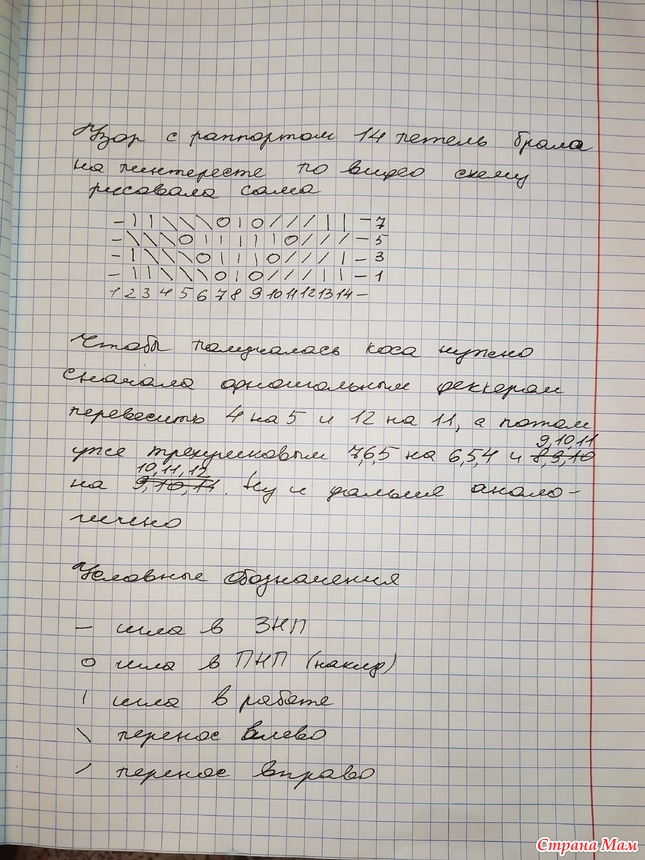 Узор с раппортом 14 петель брала
на пинтересте по видео схему
рисовала сама
- | | \ \ \ O | O / / / | | - 7
- \ \ \ O | | | | | O / / / - 5
- | \ \ \ O | | | O / / / | - 3
- | | \ \ \ O | O / / / | | - 1
1 2 3 4 5 6 7 8 9 10 11 12 13 14 -
Чтобы получалась коса нужно
сначала одноигольным деккером
перевесить 4 на 5 и 12 на 11, а потом
9, 10, 11
уже трехушковым 7,6,5 на 6,5,4 и 8,9,10
10, 11, 12
на 9, 10, 11. Ну и дальше анало-
гично
Условные обозначения
- игла в ЗНП
O игла в ПНП (накид)
| игла в работе
\ перенос влево
/ перенос вправо
Страна Мам